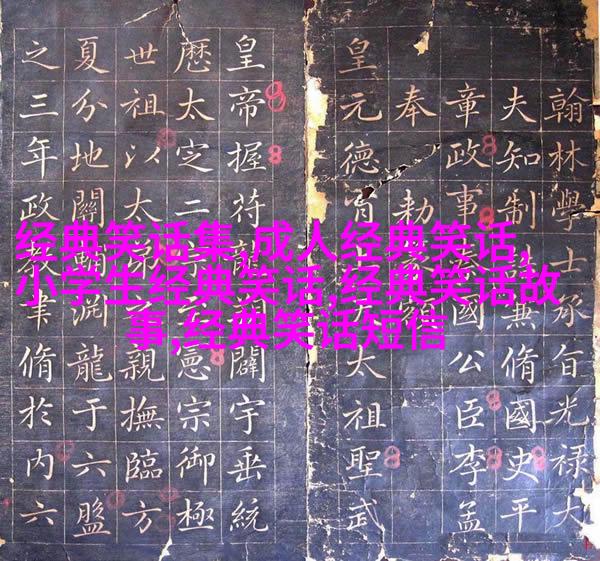 经典笑话集,成人经典笑话,
小学生经典笑话,经典笑话故
事,经典笑话短信
翰林學士承旨光祿大
夫知制誥兼脩國史平
章政事秦國公臣李孟
奉勅
皇元德胄太祖聖武
皇帝握符龍闢宇垂統
厯太定二宗憲宗御極
世祖以太弟之親撫臨方
夏分地關淵龍于六盤
之三年政教聿脩於內六